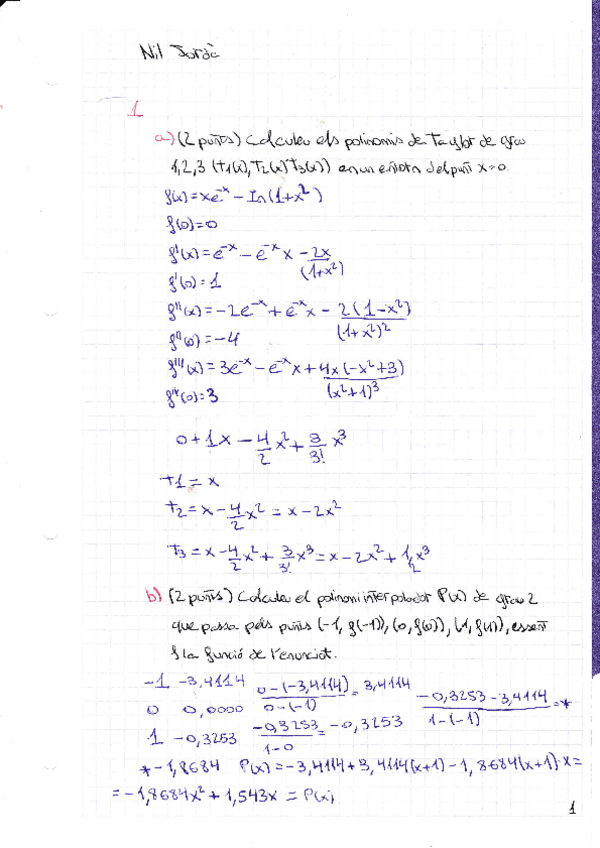 Nil Jordà
1
a) (2 punts) Calculeu els polinomis de Taylor de grau
1,2,3 (T1(x), T2(x) T3(x)) en un entorn del punt x=0.
f(x)=xe^-x - ln(1+x^2)
f(0)=0
f'(x)=e^-x - e^-x x - 2x/(1+x^2)
f'(0)=1
f''(x)=-2e^-x + e^-x x - 2(1-x^2)/(1+x^2)^2
f''(0)=-4
f'''(x)=3e^-x - e^-x x + 4x(-x^2+3)/(x^2+1)^3
f'''(0)=3
0+1x-4/2 x^2+3/3! x^3
T1=x
T2=x-4/2 x^2=x-2x^2
T3=x-4/2 x^2+3/3! x^3=x-2x^2+1/2 x^3
b) (2 punts) Calculeu el polinomi interpolador P(x) de grau 2
que passa pels punts (-1, f(-1)), (0, f(0)), (1, f(1)), essent
f la funció de l'enunciat.
-1 -3,4114 0-(-3,4114)/0-(-1) = 3,4114 -0,3253-3,4114/1-(-1) = *
0 0,0000
1 -0,3253 -0,3253/1-0 = -0,3253
* -1,8684 P(x)=-3,4114+3,4114(x+1)-1,8684(x+1)·x=
=-1,8684x^2+1,543x=P(x)
1